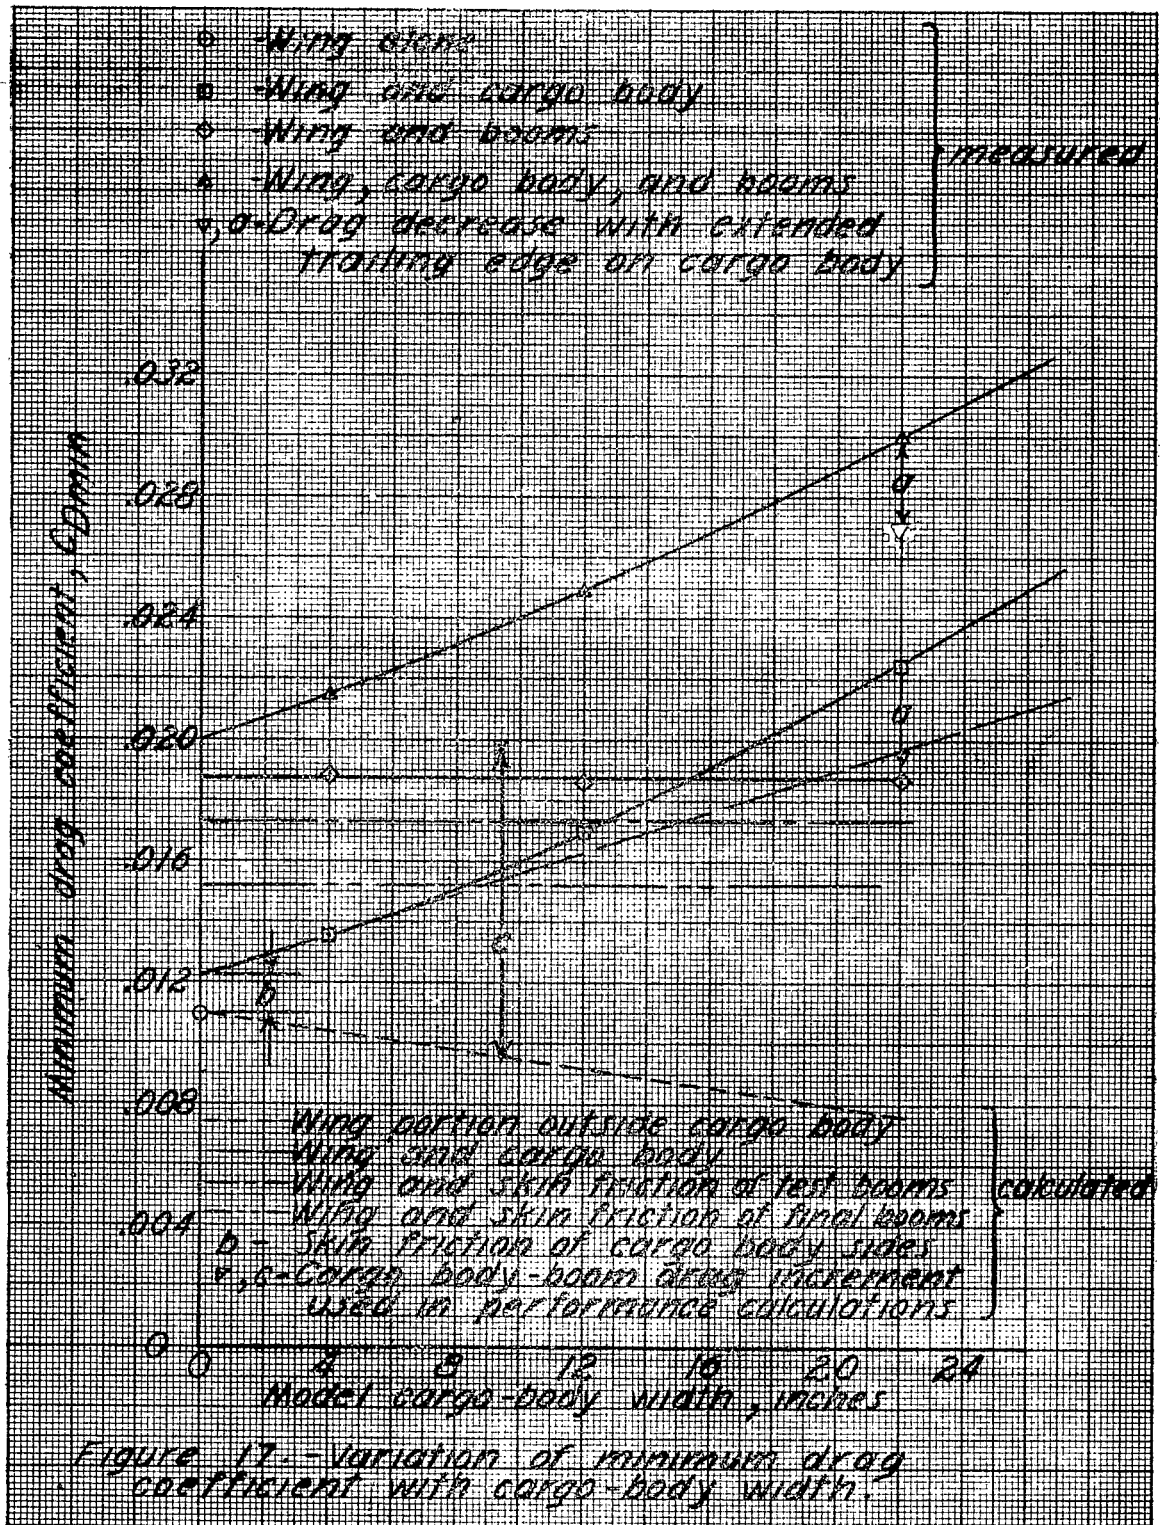 -Wing alone
-Wing and cargo body
-Wing and booms
-Wing, cargo body, and booms
measured
,a-Drag decrease with extended
trailing edge on cargo body
.032
.028
.024
.020
.016
.012
.008
.004
0
Minimum drag coefficient, CDmin
a
a
c
b
Wing portion outside cargo body
Wing and cargo body
Wing and skin friction of test booms
Wing and skin friction of final booms
calculated
b - Skin friction of cargo body sides
,c-Cargo body-boom drag increment
used in performance calculations
0 4 8 12 16 20 24
Model cargo-body width, inches
Figure 17.-Variation of minimum drag
coefficient with cargo-body width.